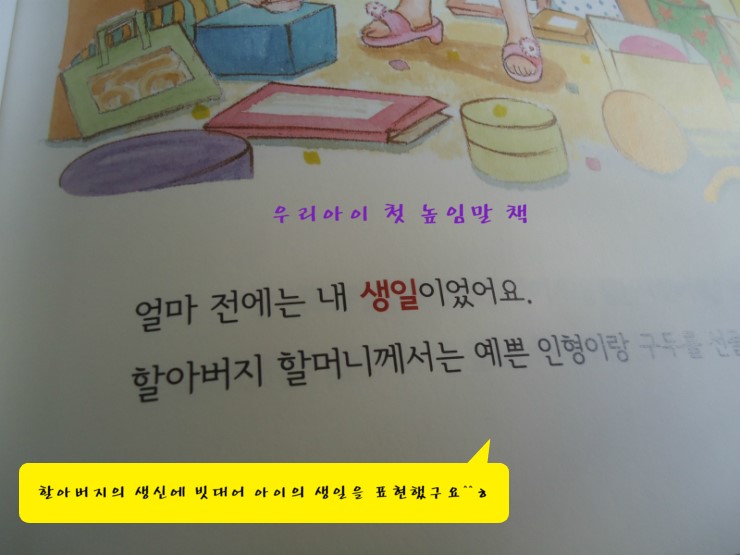 우리아이 첫 높임말 책
얼마 전에는 내 생일이었어요.
할아버지 할머니께서는 예쁜 인형이랑 구두를 선물
할아버지의 생신에 빗대어 아이의 생일을 표현했구요^^ㅎ